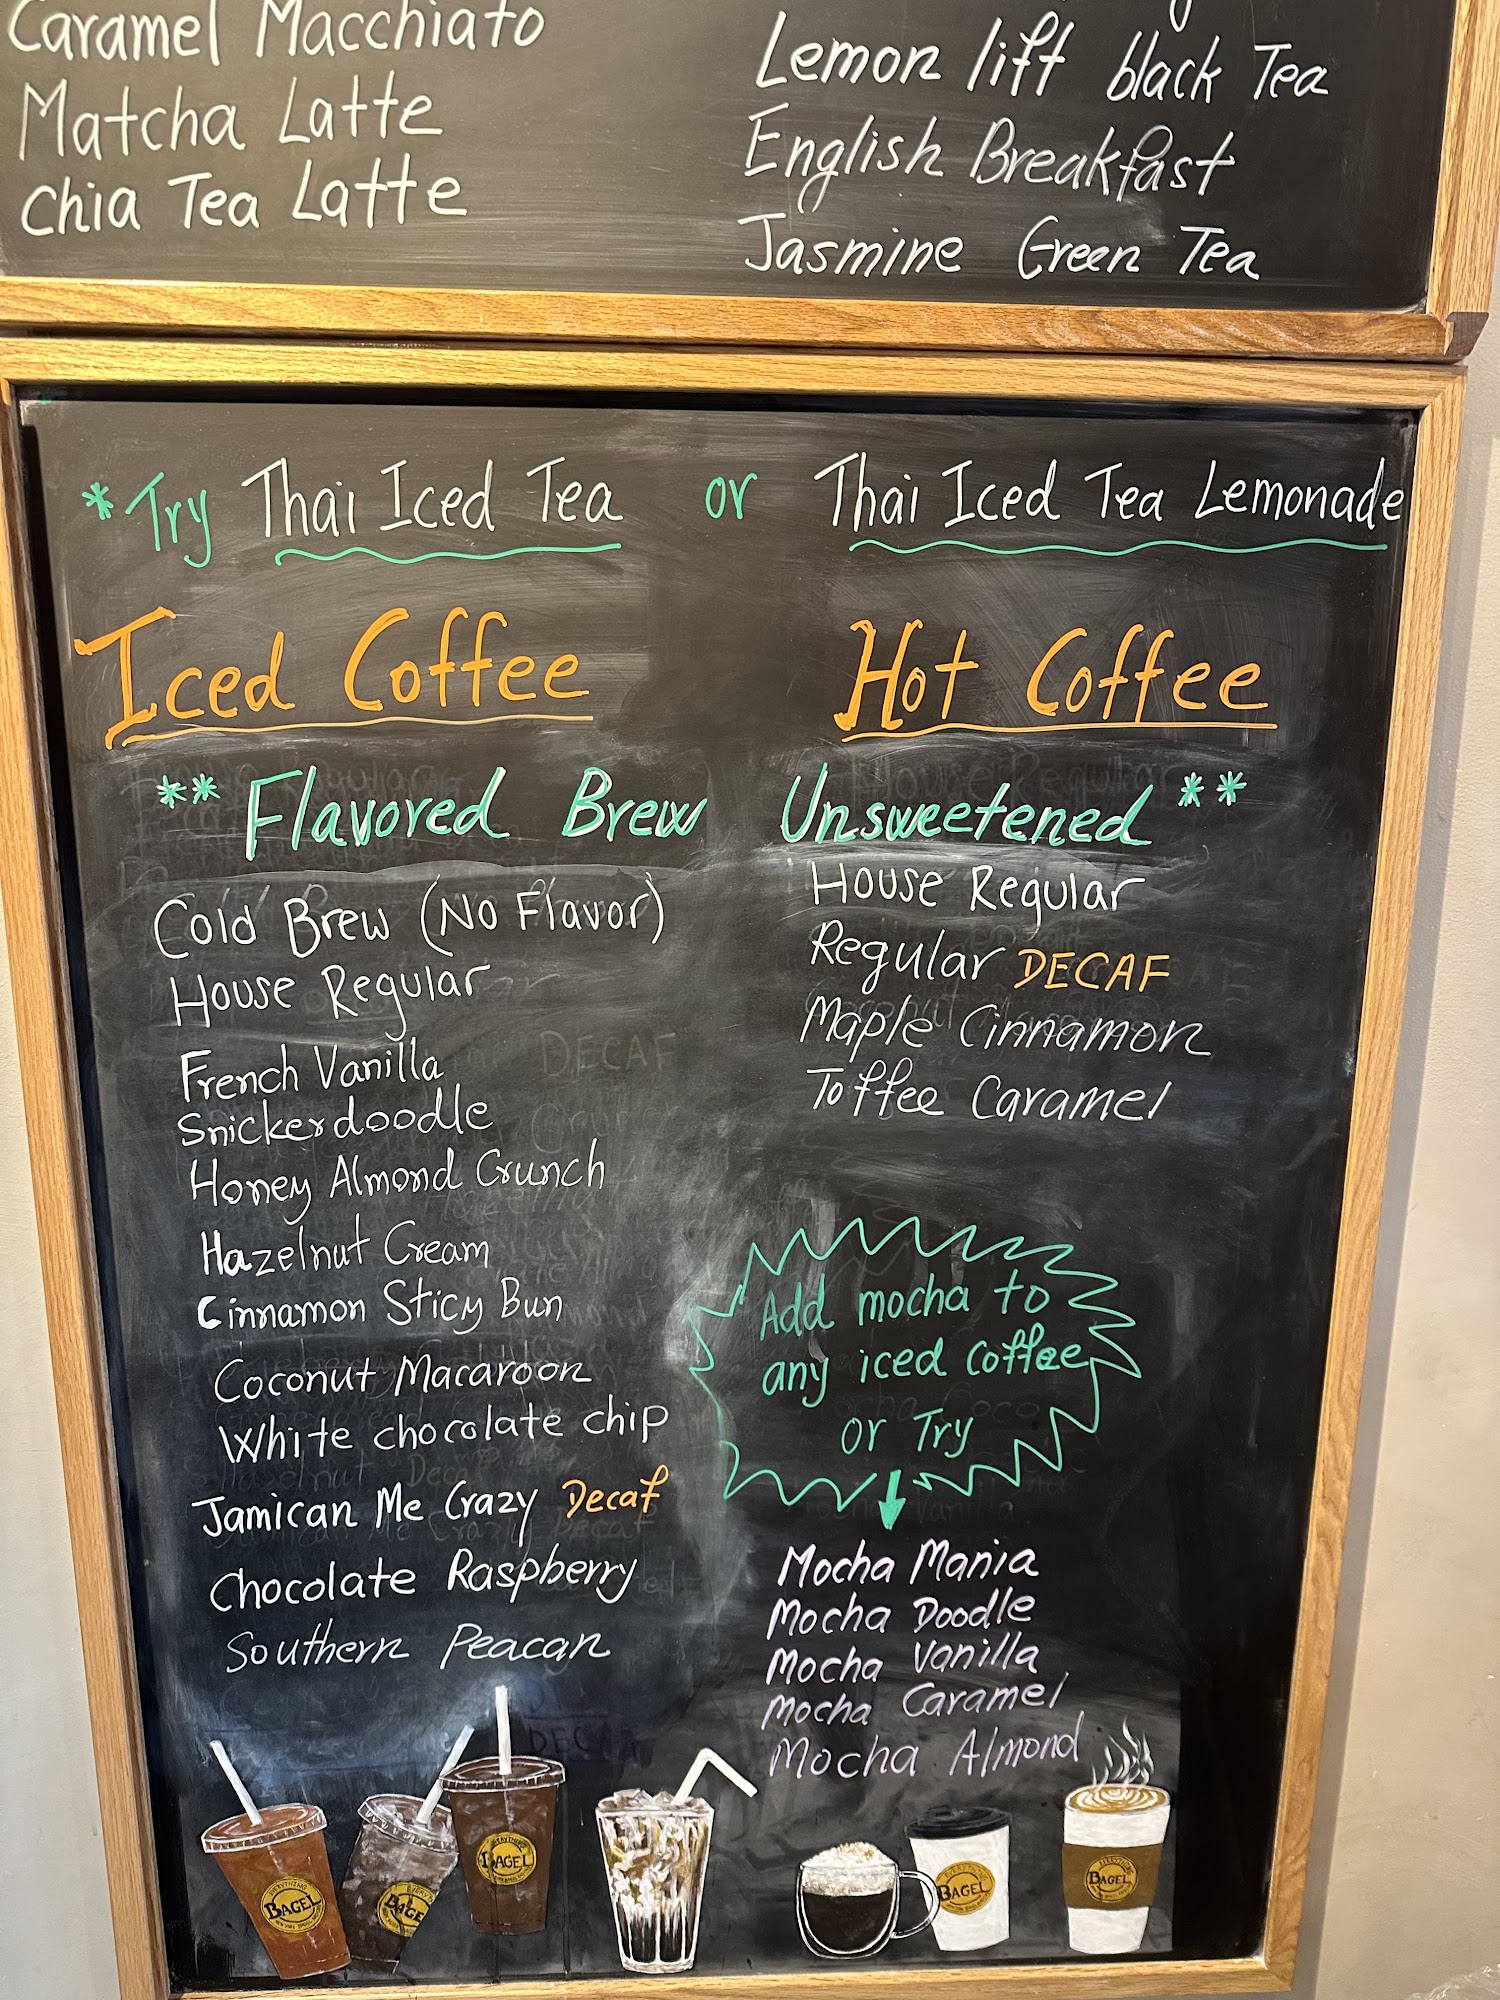 Caramel Macchiato
Matcha Latte
Chia Tea Latte
Lemon lift black Tea
English Breakfast
Jasmine Green Tea
*Try Thai Iced Tea or Thai Iced Tea Lemonade
Iced Coffee
Hot Coffee
** Flavored Brew Unsweetened **
Cold Brew (No Flavor)
House Regular
French Vanilla
Snickerdoodle
Honey Almond Crunch
Hazelnut Cream
Cinnamon Sticy Bun
Coconut Macaroon
White chocolate chip
Jamican Me Crazy Decaf
Chocolate Raspberry
Southern Peacan
House Regular
Regular DECAF
Maple Cinnamon
Toffee Caramel
Add mocha to
any iced coffee
or Try
Mocha Mania
Mocha Doodle
Mocha Vanilla
Mocha Caramel
Mocha Almond
EVERYTHING
BAGEL
BAGE
BAGEL
BAGEL
BAGEL